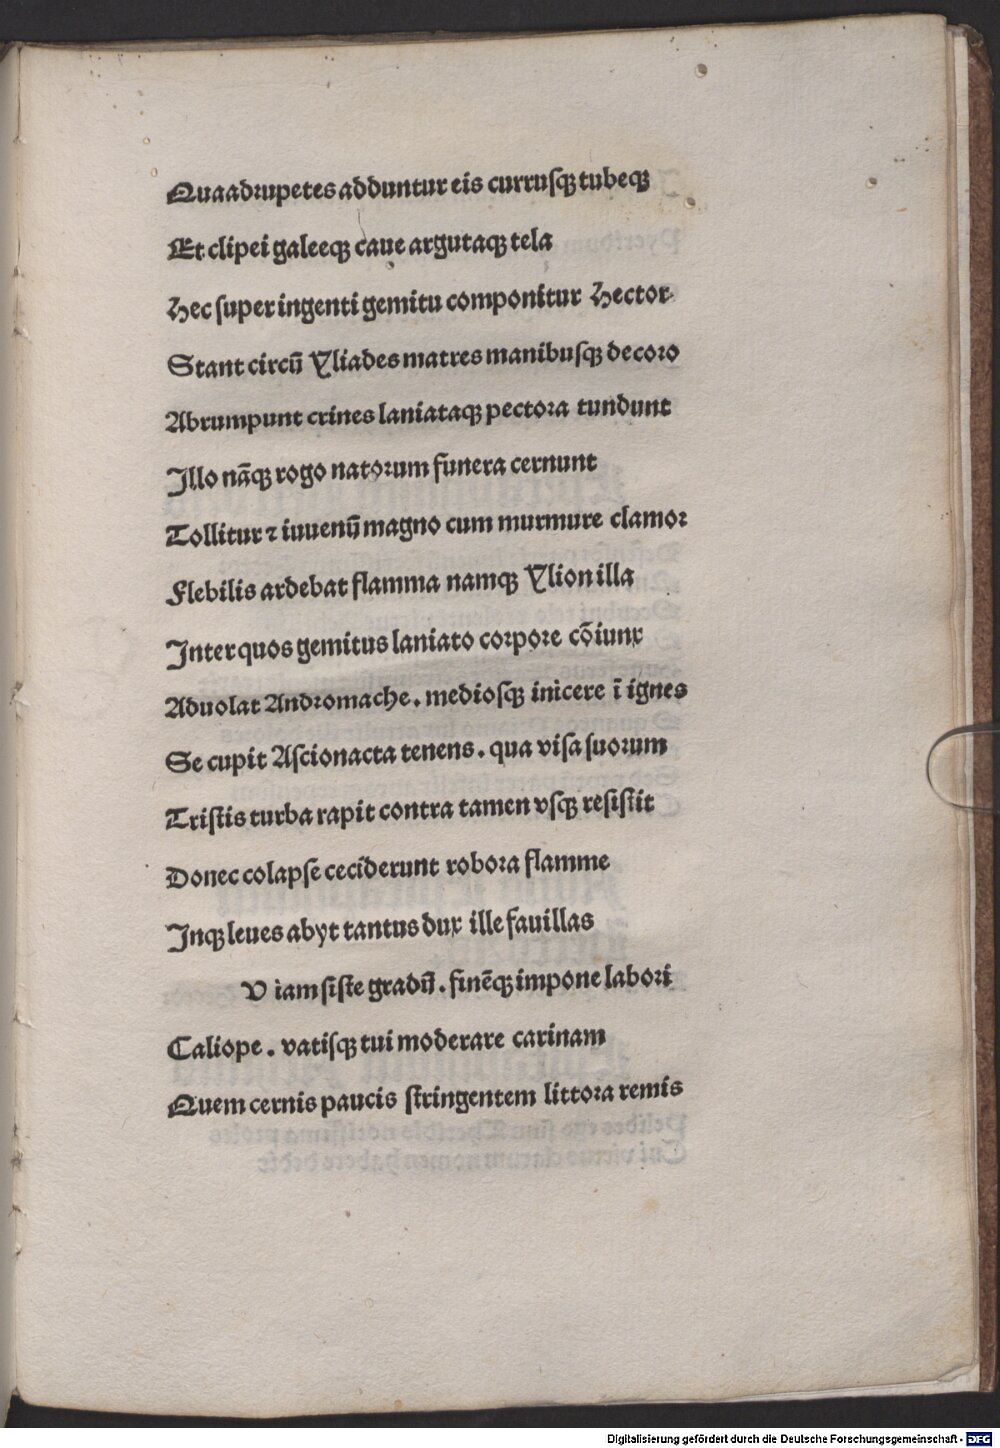 Quaadrupetes adduntur eis curruſqꝫ tubeqꝫ
Et clipei galeeqꝫ caue argutaqꝫ tela
Hec ſuper ingenti gemitu componitur Hector
Stant circū Yliades matres manibuſqꝫ decoro
Abrumpunt crines laniataqꝫ pectora tundunt
Illo nāqꝫ rogo natorum funera cernunt
Tollitur ⁊ iuuenū magno cum murmure clamor
Flebilis ardebat flamma namqꝫ Ylion illa
Inter quos gemitus laniato corpore cōiunx
Aduolat Andromache. medioſqꝫ inicere ī ignes
Se cupit Aſcionacta tenens. qua viſa ſuorum
Triſtis turba rapit contra tamen vſqꝫ reſiſtit
Donec colapſe ceciderunt robora flamme
Inqꝫ leues abyt tantus dux ille fauillas
V iam ſiſte gradū. finēqꝫ impone labori
Caliope. vatiſqꝫ tui moderare carinam
Quem cernis paucis ſtringentem littora remis
Digitalisierung gefördert durch die Deutsche Forschungsgemeinschaft - DFG